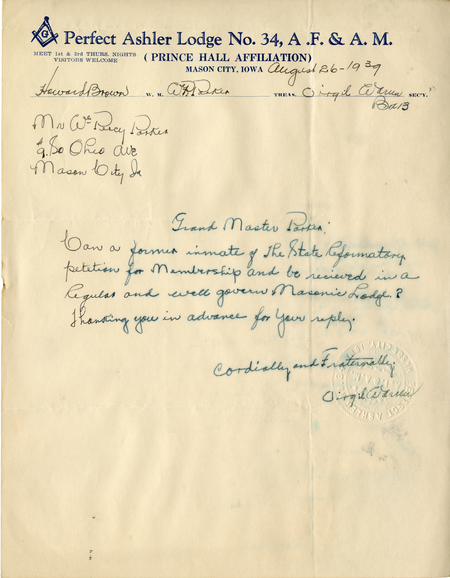 Perfect Ashler Lodge No. 34, A .F. & A. M.
MEET 1st & 3rd THURS. NIGHTS
VISITORS WELCOME
( PRINCE HALL AFFILIATION )
MASON CITY, IOWA August 26-1939
Howard Brown W. M. TREAS. Virgil Warren SEC'Y.
Mr Wm Percy Parker
So Ohio Ave
Mason City Ia
Grand Master Parker;
Can a former inmate of The State Reformatory
petition for Membership and be recieved in a
Regular and well govern Masonic Lodge?
Thanking you in advance for your reply.
Cordially and Fraternally
Virgil Warren